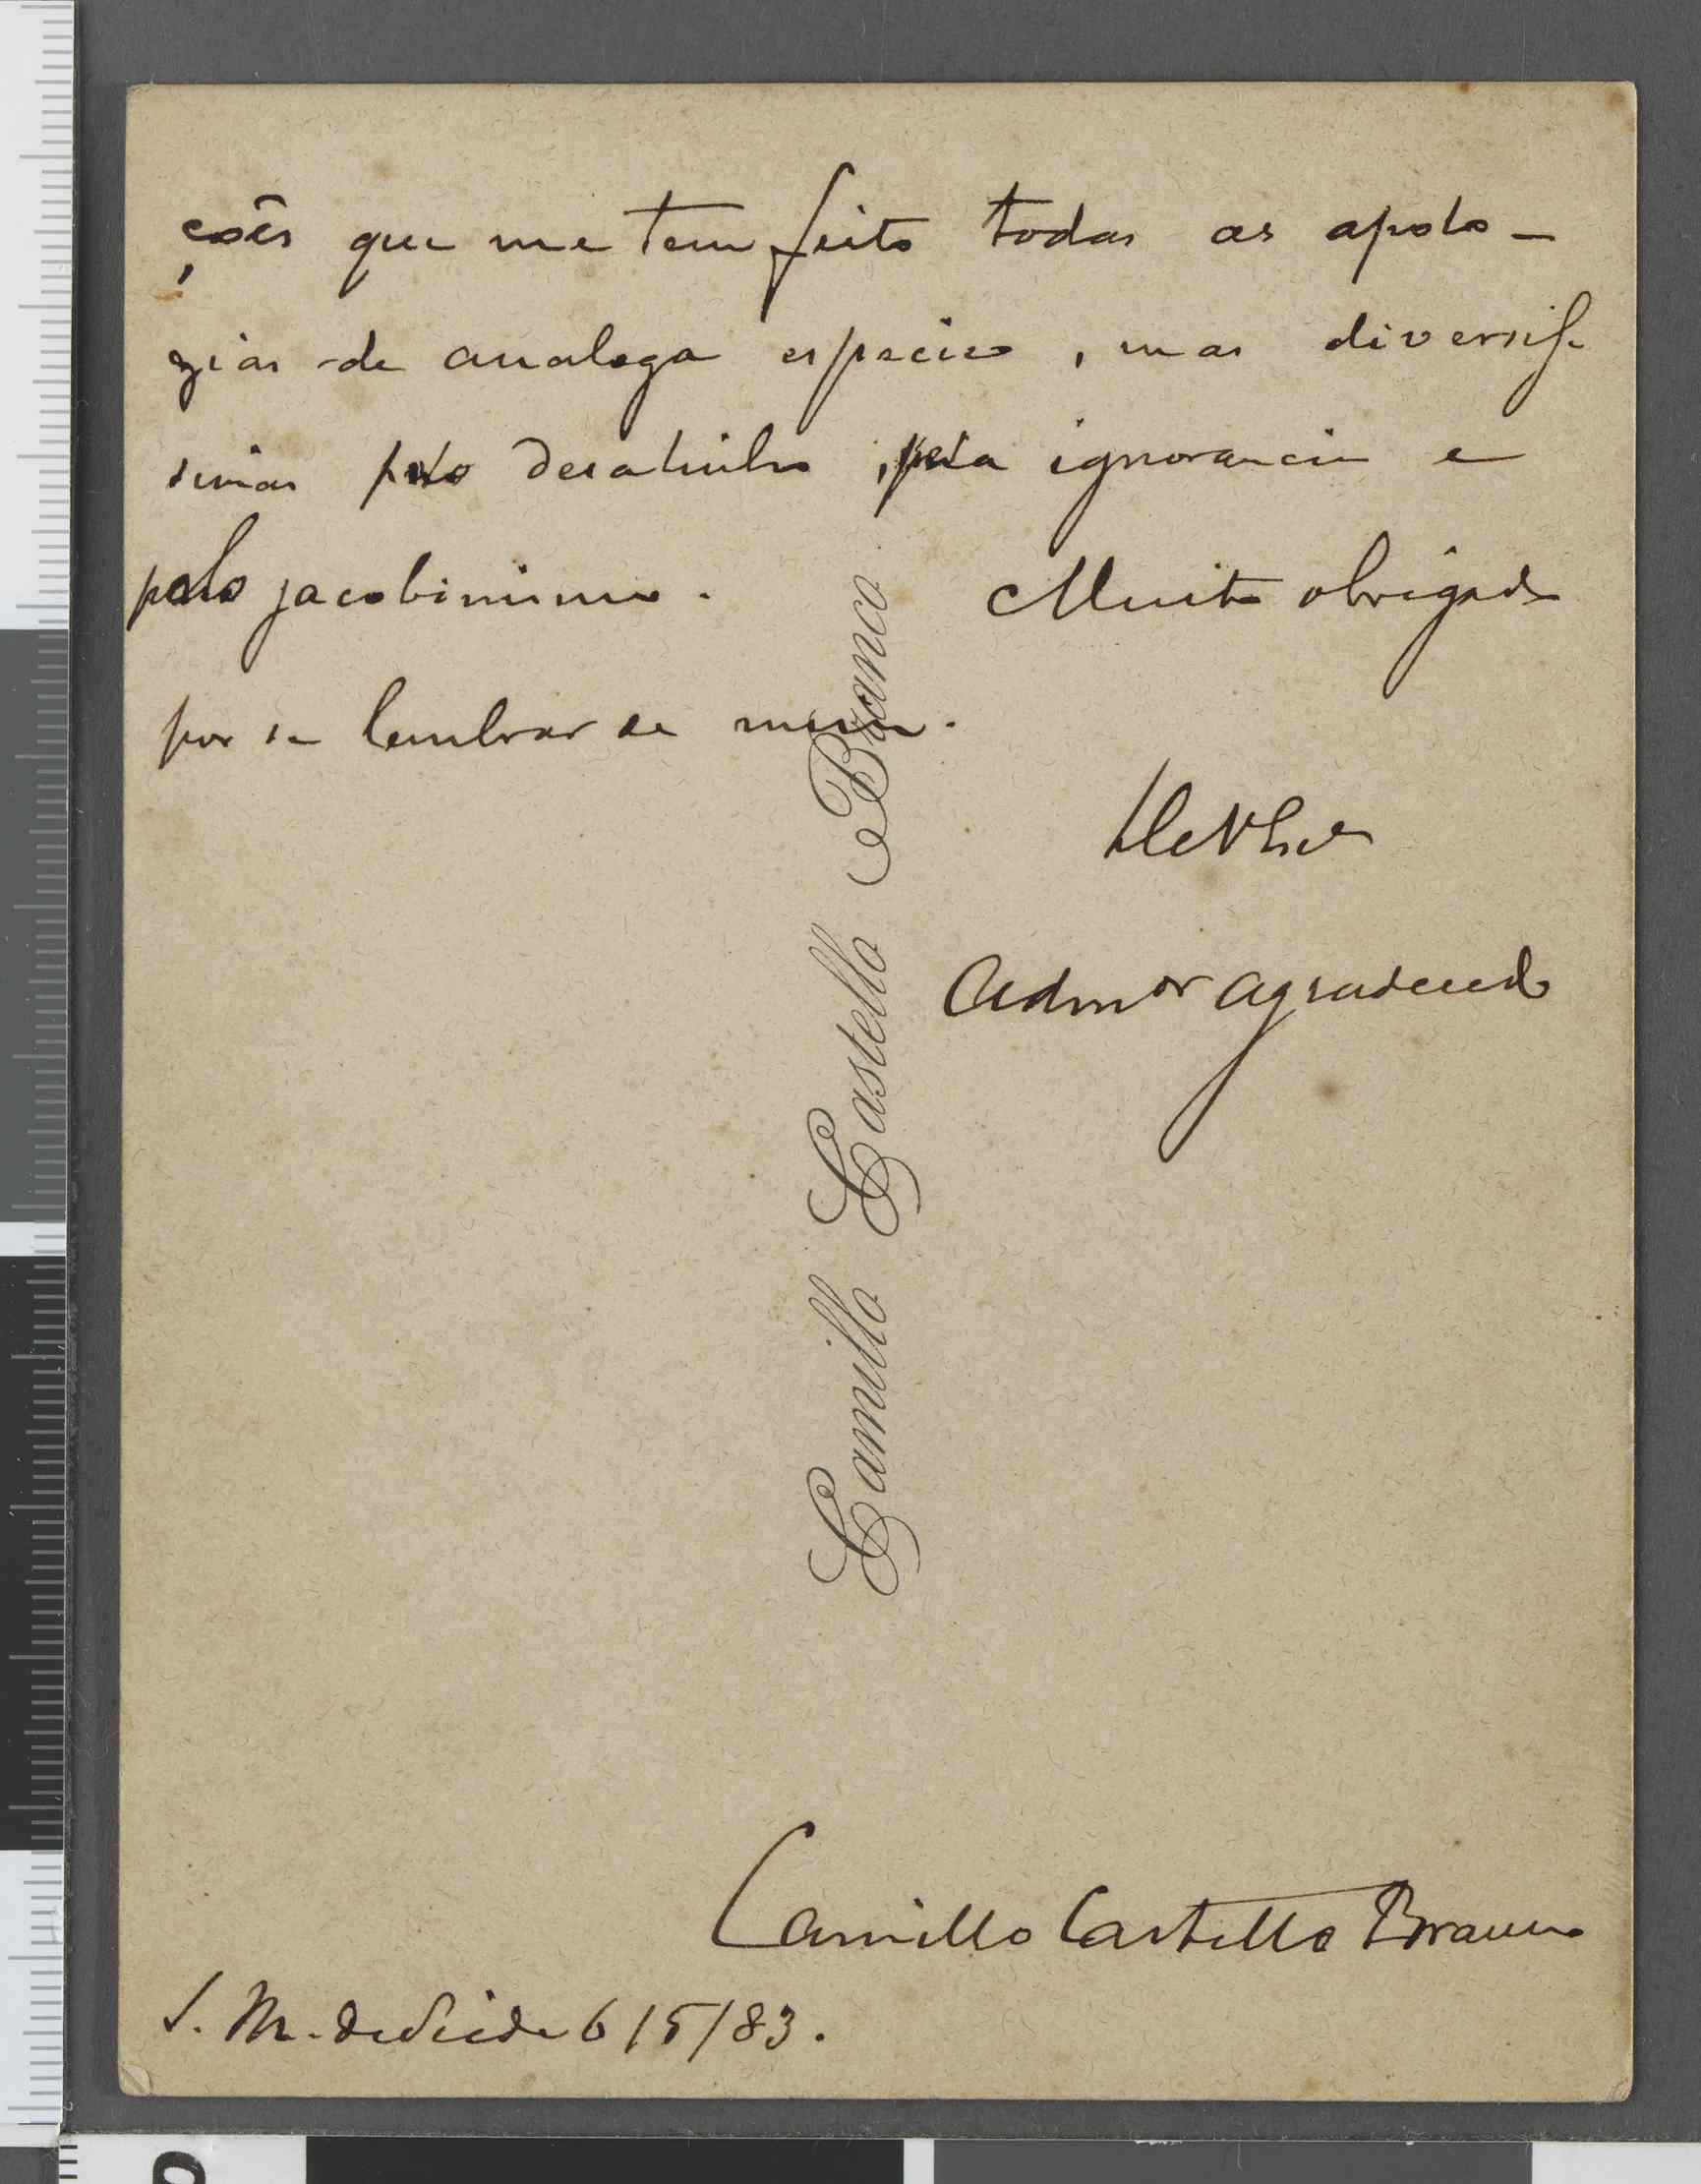 ções que me tem feito todas as apolo-
gias de analoga especie, mas diversis-
simas pelo desalinho, pela ignorancia e
pelo jacobinismo. Muito obrigado
por se lembrar de mim.
De V. Ex.ª
Adm.or agradecido
Camillo Castello Branco
Camillo Castello Branco
S. M. de Seide 6/5/83.